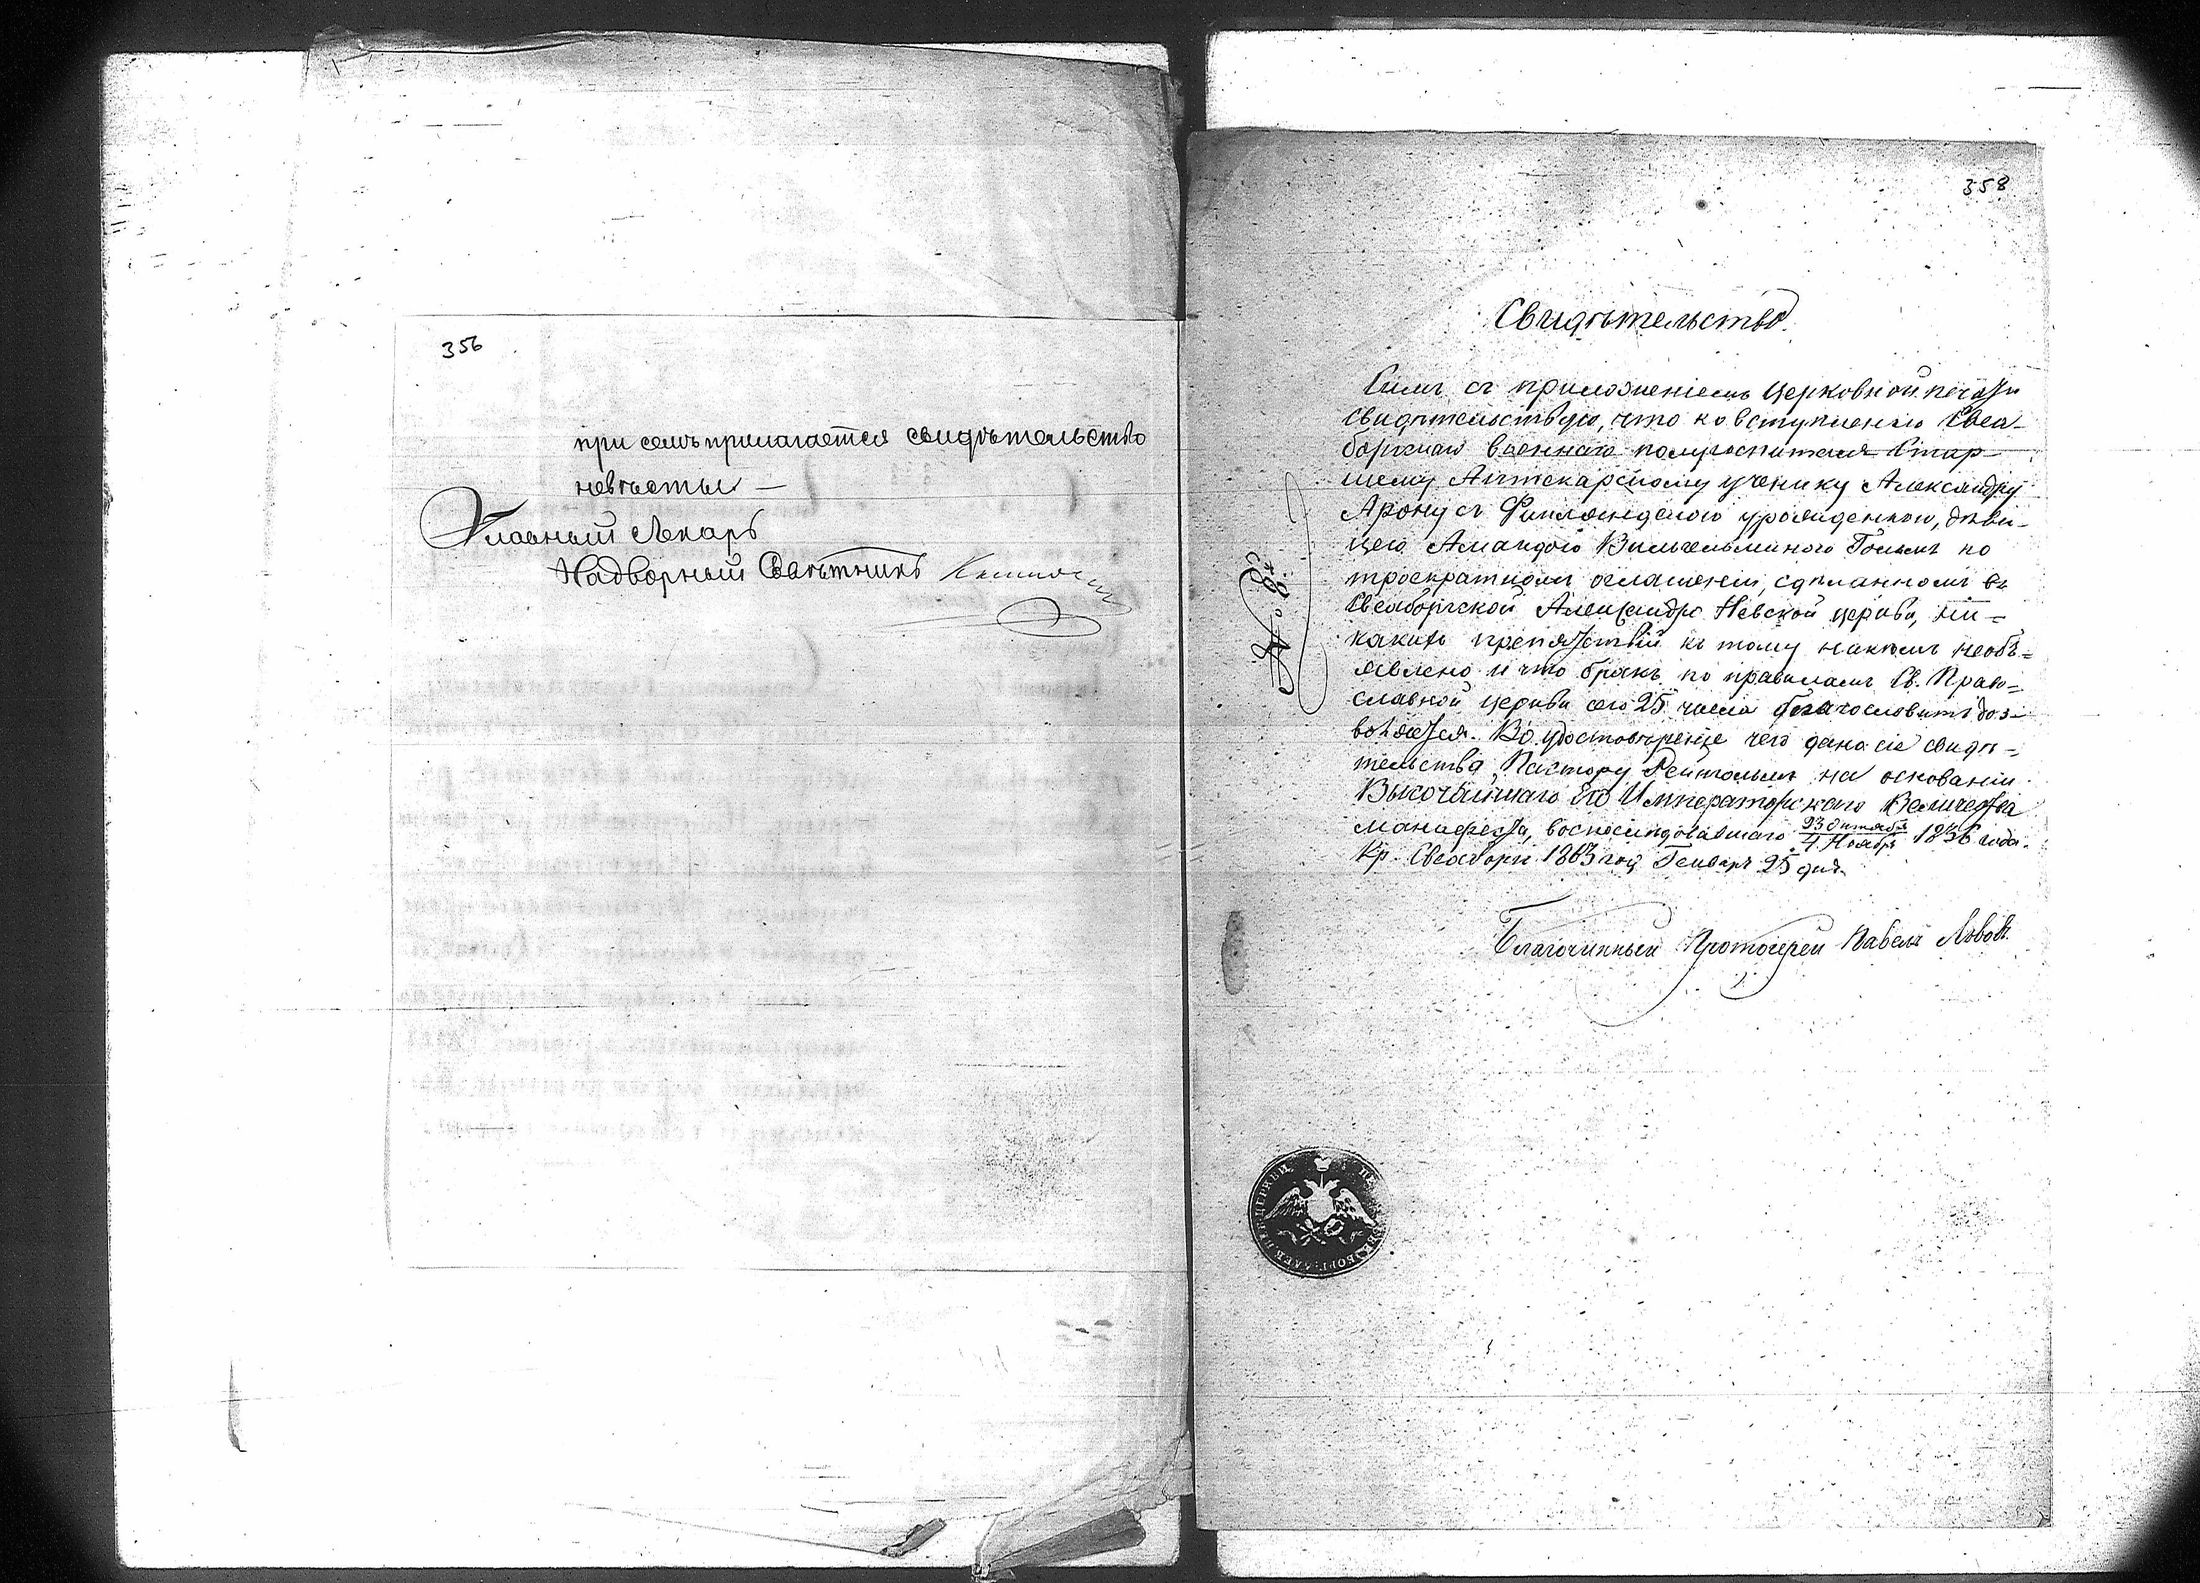 356
при семъ прилагается свидѣтельство
невѣсты —
Главный Лекарь
Надворный Совѣтникъ
358
Свидѣтельство.
Симъ съ приложеніемъ Церковной печати
свидѣтельствую, что ко вступленію Свеа-
боргскаго военнаго полугоспиталя Стар-
шему Аптекарскому ученику Александру
Арону съ Финляндскою урожденкою, дѣви-
цею Амандою Вильгельминою Гольмъ по
троекратномъ оглашеніи, сдѣланномъ въ
Свеаборгской Александро Невской церкви, ни-
какихъ препятствій къ тому никѣмъ необъ-
явлено и что бракъ по правиламъ Св. Право-
славной церкви сего 25 числа благословить доз-
воляется. Во удостовѣреніе чего дано сіе свидѣ-
тельство Пастору на основаніи
Высочайшаго Его Императорскаго Величества
манифеста, воспослѣдовавшаго 23 Октября / 4 Ноября 18 6 года.
Кр. Свеаборгъ 1863 год Генваря 25 дня.
Благочинный Протоіерей Павелъ Львовъ.
№ 8.